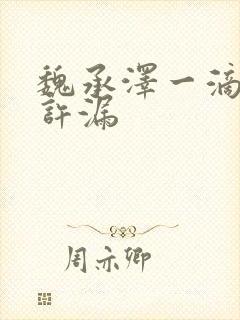 魏承澤一滴
許漏
周亦卿